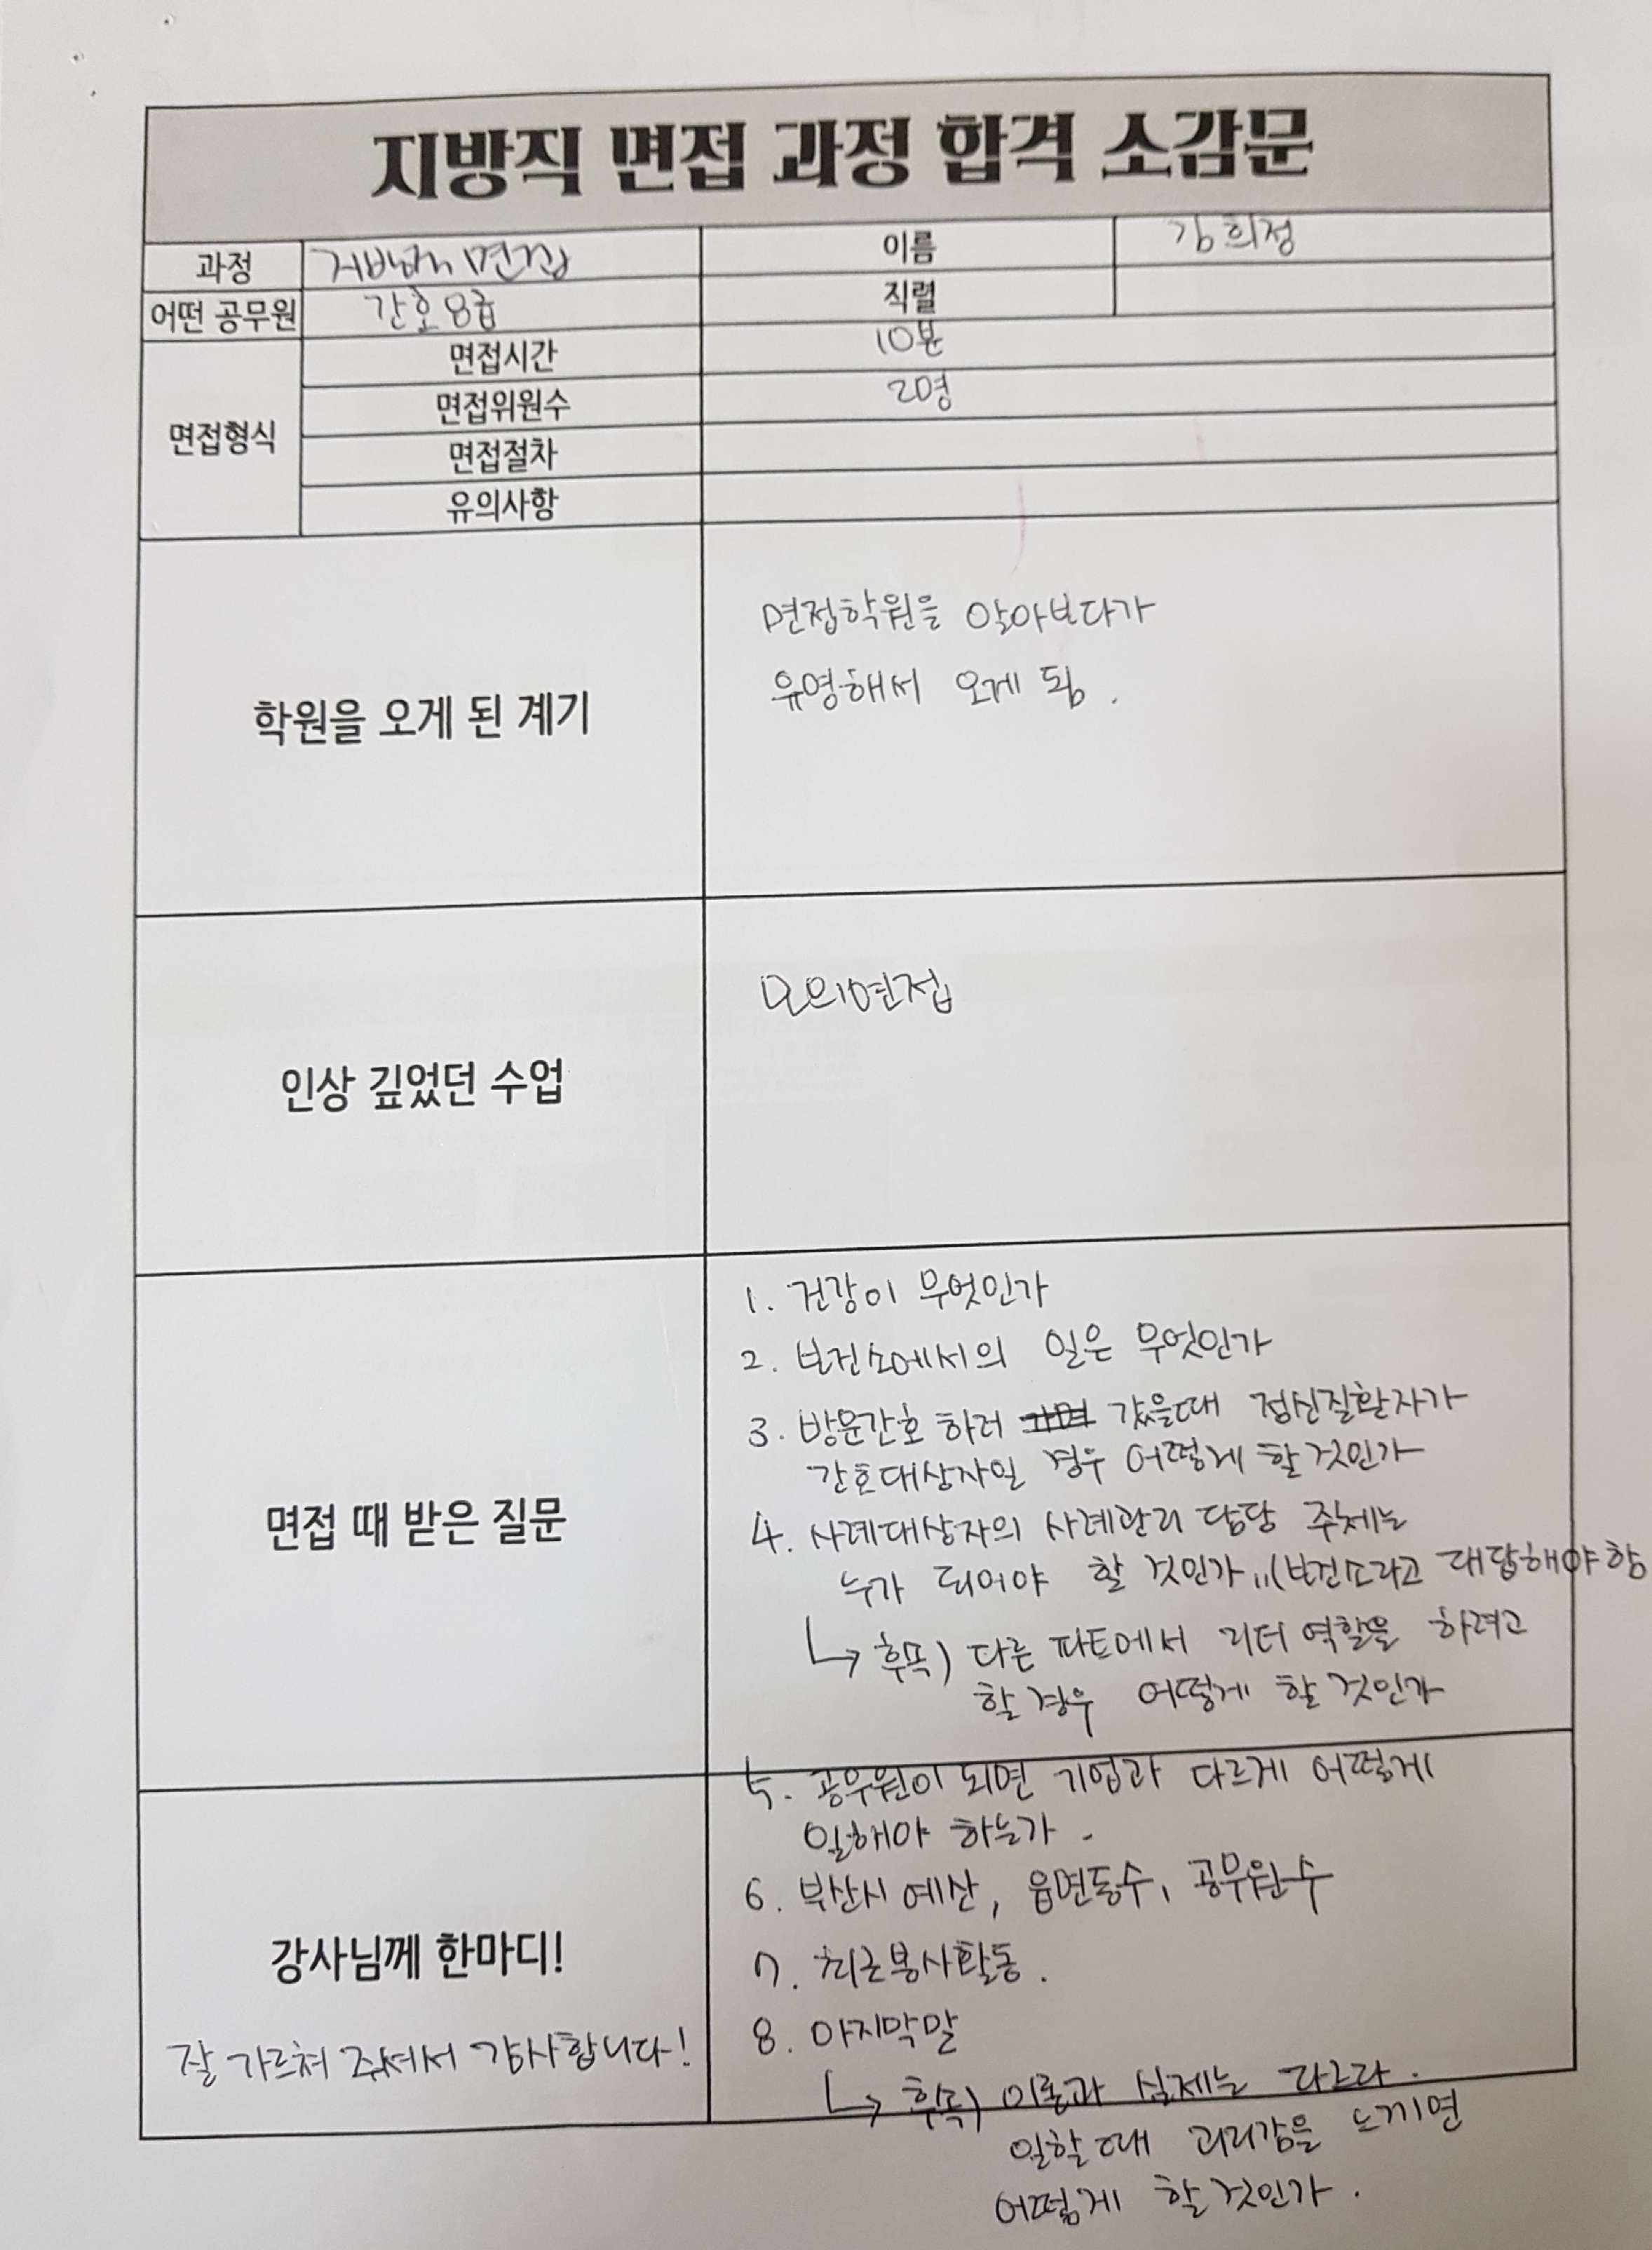 지방직 면접 과정 합격 소감문
과정 면접 이름 강희정
어떤 공무원 간호8급 직렬
면접형식
면접시간 10분
면접위원수 2명
면접절차
유의사항
학원을 오게 된 계기
면접학원을 알아보다가
유명해서 오게 됨.
인상 깊었던 수업
모의면접
면접 때 받은 질문
1. 건강이 무엇인가
2. 보건소에서의 일은 무엇인가
3. 방문간호 하러 갔을때 정신질환자가
간호대상자일 경우 어떻게 할 것인가
4. 사례대상자의 사례관리 담당 주체는
누가 되어야 할 것인가..(보건소라고 대답해야함
↳ 후속) 다른 파트에서 리더 역할을 하려고
할 경우 어떻게 할 것인가
5. 공무원이 되면 기업과 다르게 어떻게
일해야 하는가.
6. 부산시 예산, 읍면동수, 공무원수
7. 최근봉사활동.
8. 마지막말
↳ 후속) 이론과 실제는 다르다.
일할때 괴리감을 느끼면
어떻게 할 것인가.
강사님께 한마디!
잘 가르쳐 주셔서 감사합니다!